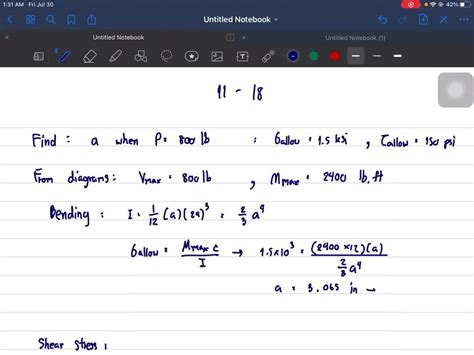 1:31 AM Fri Jul 30 42%
Untitled Notebook
Untitled Notebook
Untitled Notebook (1)
11 - 18
Find : a when P = 800 lb : σallow = 1.5 ksi , τallow = 150 psi
From diagrams : Vmax = 800 lb , Mmax = 2400 lb.ft
Bending : I = 1/12 (a)(2a)³ = 2/3 a⁴
σallow = Mmax c / I → 1.5×10³ = (2400×12)(a) / 2/3 a⁴
a = 3.065 in →
Shear stress :